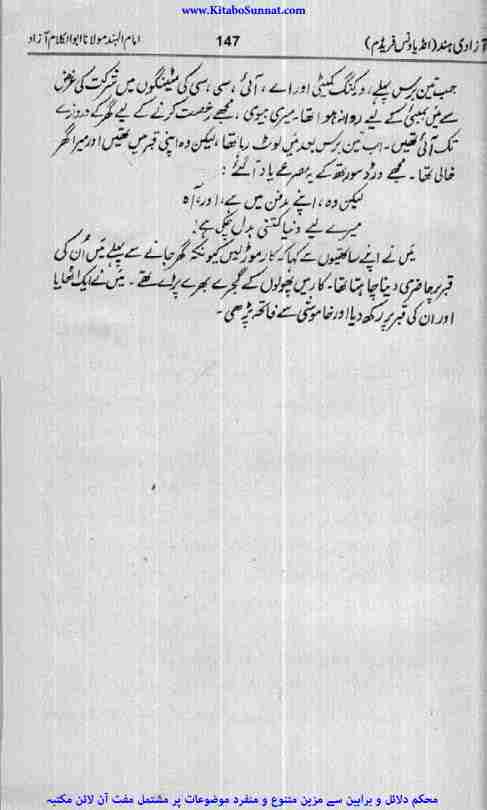 www.KitaboSunnat.com
آزادی ہند (انڈیا ونس فریڈم) 147 امام الہند مولانا ابوالکلام آزاد
جب تین برس پہلے، ورکنگ کمیٹی اور اے، آئی، سی، سی کی میٹنگوں میں شرکت کی غرض
سے میں بمبئی کے لیے روانہ ہوا تھا۔ میری بیوی، مجھے رخصت کرنے کے لیے گھر کے دروازے
تک آئی تھیں۔ اب تین برس بعد میں لوٹ رہا تھا، لیکن وہ اپنی قبر میں تھیں اور میرا گھر
خالی تھا۔ مجھے ورڈسورتھ کے یہ مصرعے یاد آئے:
لیکن وہ، اپنے مدفن میں ہے، اور، آہ
میرے لیے دنیا کتنی بدل چکی ہے!
میں نے اپنے ساتھیوں سے کہا کہ کار موڑ لیں کیونکہ گھر جانے سے پہلے میں اُن کی
قبر پر حاضری دینا چاہتا تھا۔ کار میں پھولوں کے گجرے بھرے پڑے تھے۔ میں نے ایک اٹھایا
اور ان کی قبر پر رکھ دیا اور خاموشی سے فاتحہ پڑھی۔
محکم دلائل و براہین سے مزین متنوع و منفرد موضوعات پر مشتمل مفت آن لائن مکتبہ